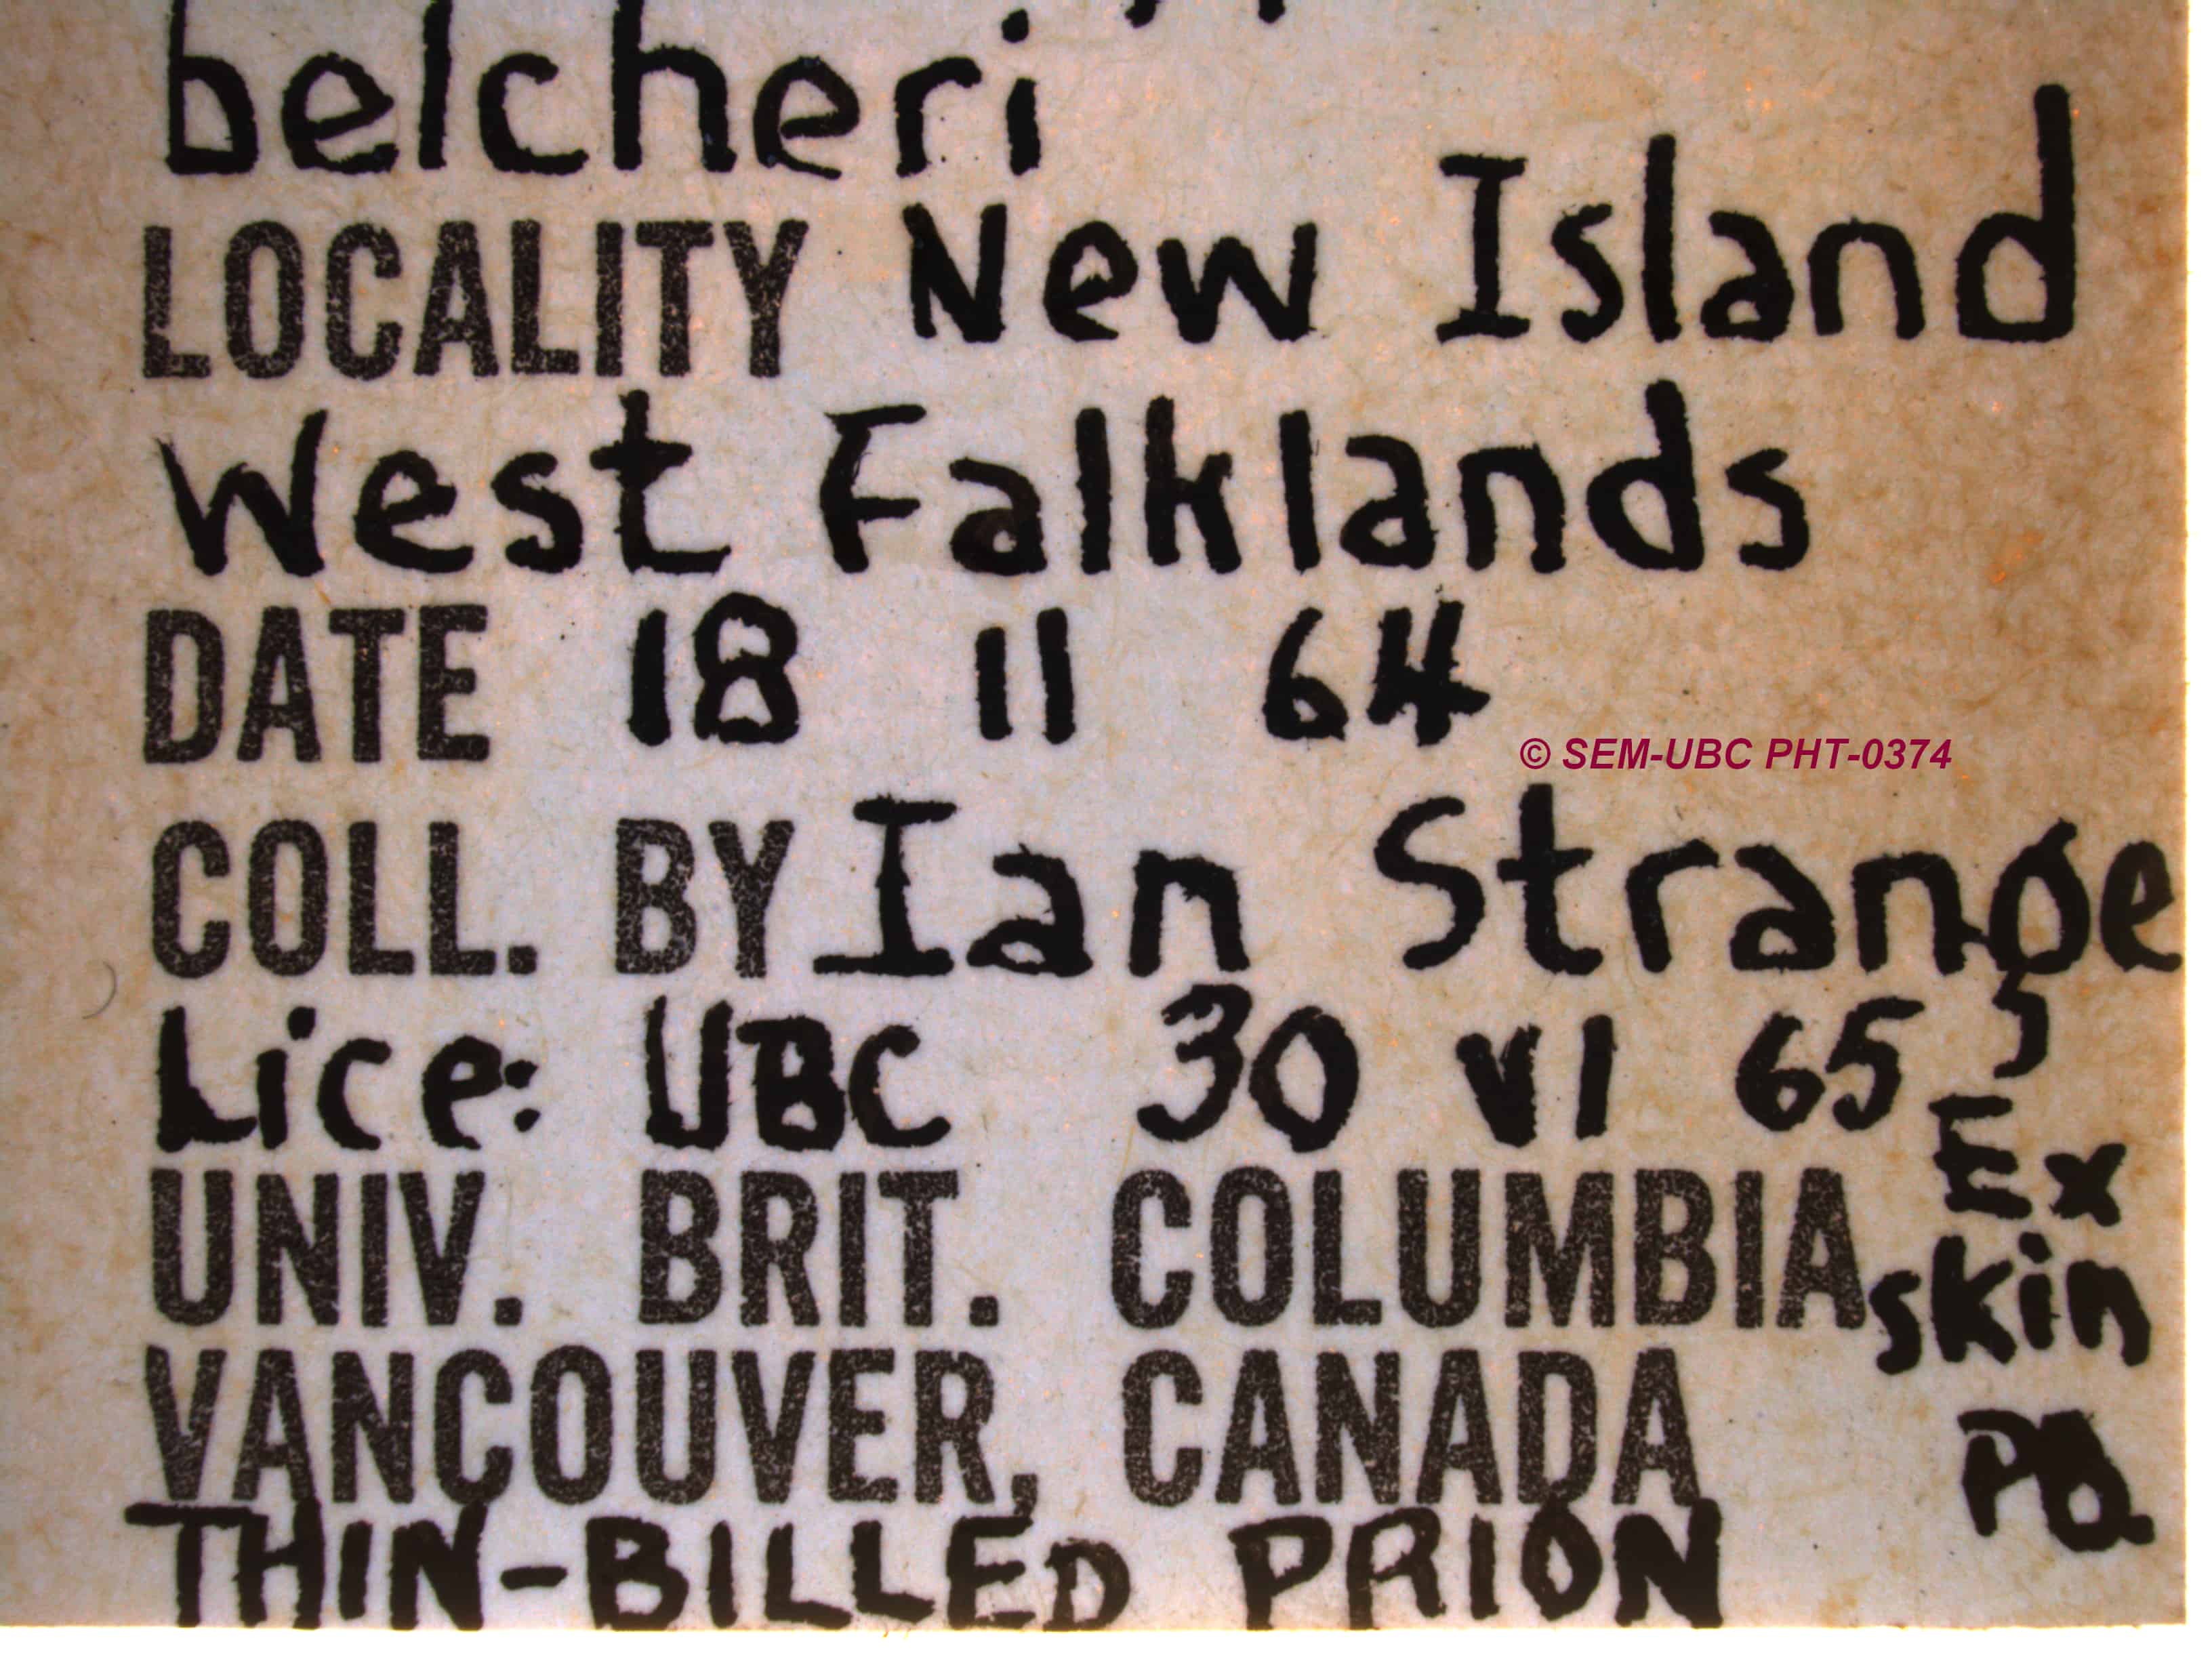 belcheri
LOCALITY New Island
West Falklands
DATE 18 11 64
© SEM-UBC PHT-0374
COLL. BY Ian Strange
Lice: UBC 30 VI 65
Ex
UNIV. BRIT. COLUMBIA
skin
VANCOUVER, CANADA
THIN-BILLED PRION